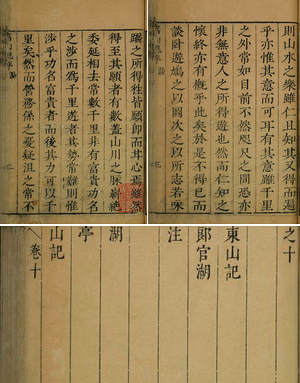 則山水之樂雖仁且知其又得而遍
乎亦惟其意而可耳有其意雖千里
之外常如目前不然咫尺之間恐亦
非無意人之所得遊也然而仁知之
懷終亦有觀乎此矣於是不得已而
談臥遊焉之以圖次之以所志若咏
之所得徃皆願卽而其心焉雖然
得至其願者有數蓋山川之脈嶄絶
委延相去常數千里非有富貴功名
之涉而爲千里遊者其勢常難則惟
涉乎功名富貴者而後其力可以千
里矣然而營務係之憂疑沮之常不
之十
東山記
郎官湖
注
湖
亭
山記
卷十